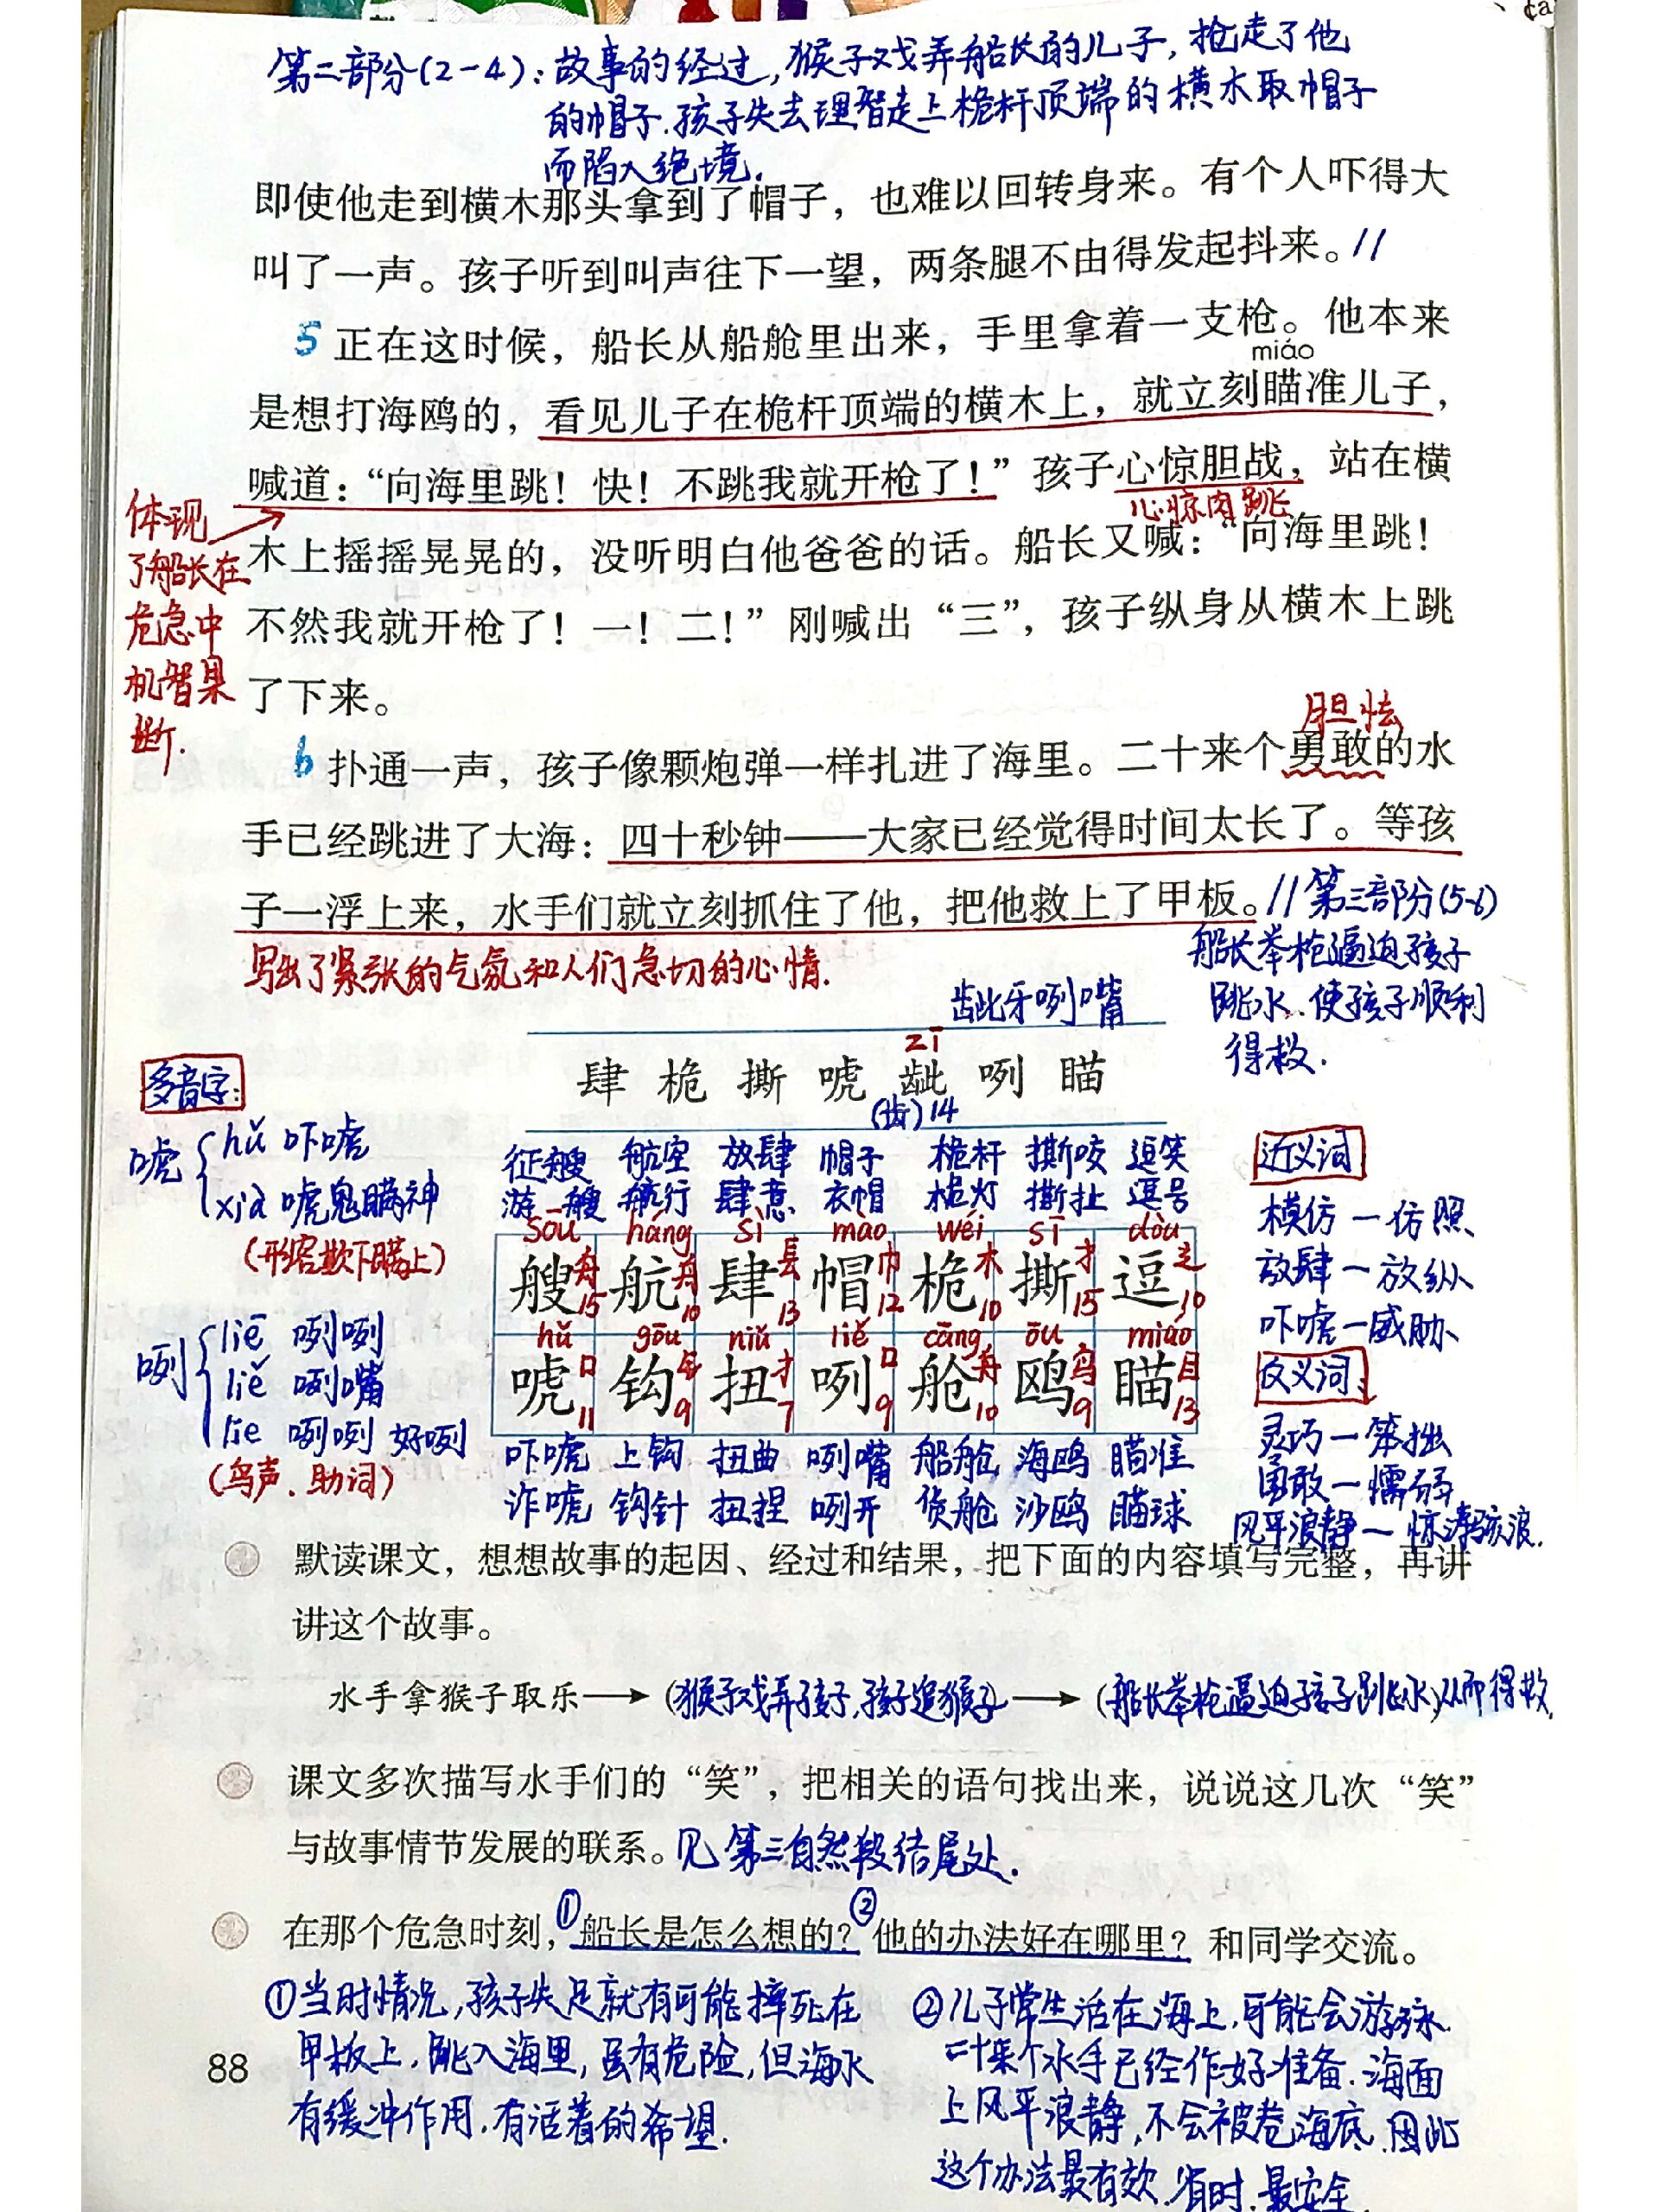 第二部分(2-4)：故事的经过,猴子戏弄船长的儿子,抢走了他
的帽子.孩子失去理智走上桅杆顶端的横木取帽子
而陷入绝境.
即使他走到横木那头拿到了帽子，也难以回转身来。有个人吓得大
叫了一声。孩子听到叫声往下一望，两条腿不由得发起抖来。//
5 正在这时候，船长从船舱里出来，手里拿着一支枪。他本来
miáo
是想打海鸥的，看见儿子在桅杆顶端的横木上，就立刻瞄准儿子，
喊道：“向海里跳！快！不跳我就开枪了！”孩子心惊胆战，站在横
心惊肉跳
木上摇摇晃晃的，没听明白他爸爸的话。船长又喊：“向海里跳！
不然我就开枪了！一！二！”刚喊出“三”，孩子纵身从横木上跳
了下来。
体现
了船长在
危急中
机智果
断.
胆怯
6 扑通一声，孩子像颗炮弹一样扎进了海里。二十来个勇敢的水
手已经跳进了大海：四十秒钟——大家已经觉得时间太长了。等孩
子一浮上来，水手们就立刻抓住了他，把他救上了甲板。//第三部分(5-6)
船长举枪逼迫孩子
跳水.使孩子顺利
得救.
写出了紧张的气氛和人们急切的心情.
龇牙咧嘴
zī
肆 桅 撕 唬 龇 咧 瞄
(齿)14
多音字:
唬 hǔ 吓唬
xià 唬鬼瞒神
(形容欺下瞒上)
咧 liē 咧咧
liě 咧嘴
lie 咧咧 好咧
(鸟声.助词)
征艘 航空 放肆 帽子 桅杆 撕咬 逗笑
游艘 航行 肆意 衣帽 桅灯 撕扯 逗号
sōu háng sì mào wéi sī dòu
艘 航 肆 帽 桅 撕 逗
舟15 舟10 镸13 巾12 木10 扌15 辶10
hǔ gōu niǔ liě cāng ōu miáo
唬 钩 扭 咧 舱 鸥 瞄
口11 钅9 扌7 口9 舟10 鸟9 目13
吓唬 上钩 扭曲 咧嘴 船舱 海鸥 瞄准
诈唬 钩针 扭捏 咧开 货舱 沙鸥 瞄球
近义词
模仿—仿照
放肆—放纵
吓唬—威胁
反义词:
灵巧—笨拙
勇敢—懦弱
风平浪静—惊涛骇浪.
默读课文，想想故事的起因、经过和结果，把下面的内容填写完整，再讲
讲这个故事。
水手拿猴子取乐→(猴子戏弄孩子,孩子追猴子)→(船长举枪逼迫孩子跳水)从而得救.
课文多次描写水手们的“笑”，把相关的语句找出来，说说这几次“笑”
与故事情节发展的联系。见第三自然段结尾处.
在那个危急时刻，①船长是怎么想的？②他的办法好在哪里？和同学交流。
①当时情况,孩子失足就有可能摔死在
甲板上.跳入海里,虽有危险,但海水
有缓冲作用.有活着的希望.
②儿子常生活在海上,可能会游泳.
二十来个水手已经作好准备.海面
上风平浪静,不会被卷海底.因此
这个办法最有效.省时.最安全
88